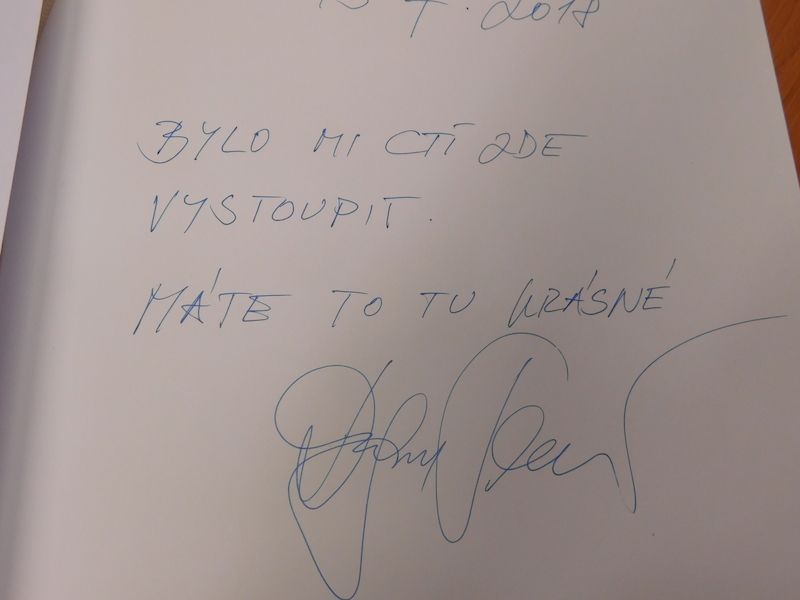 2018
BYLO MI CTÍ ZDE
VYSTOUPIT.
MÁTE TO TU KRÁSNÉ